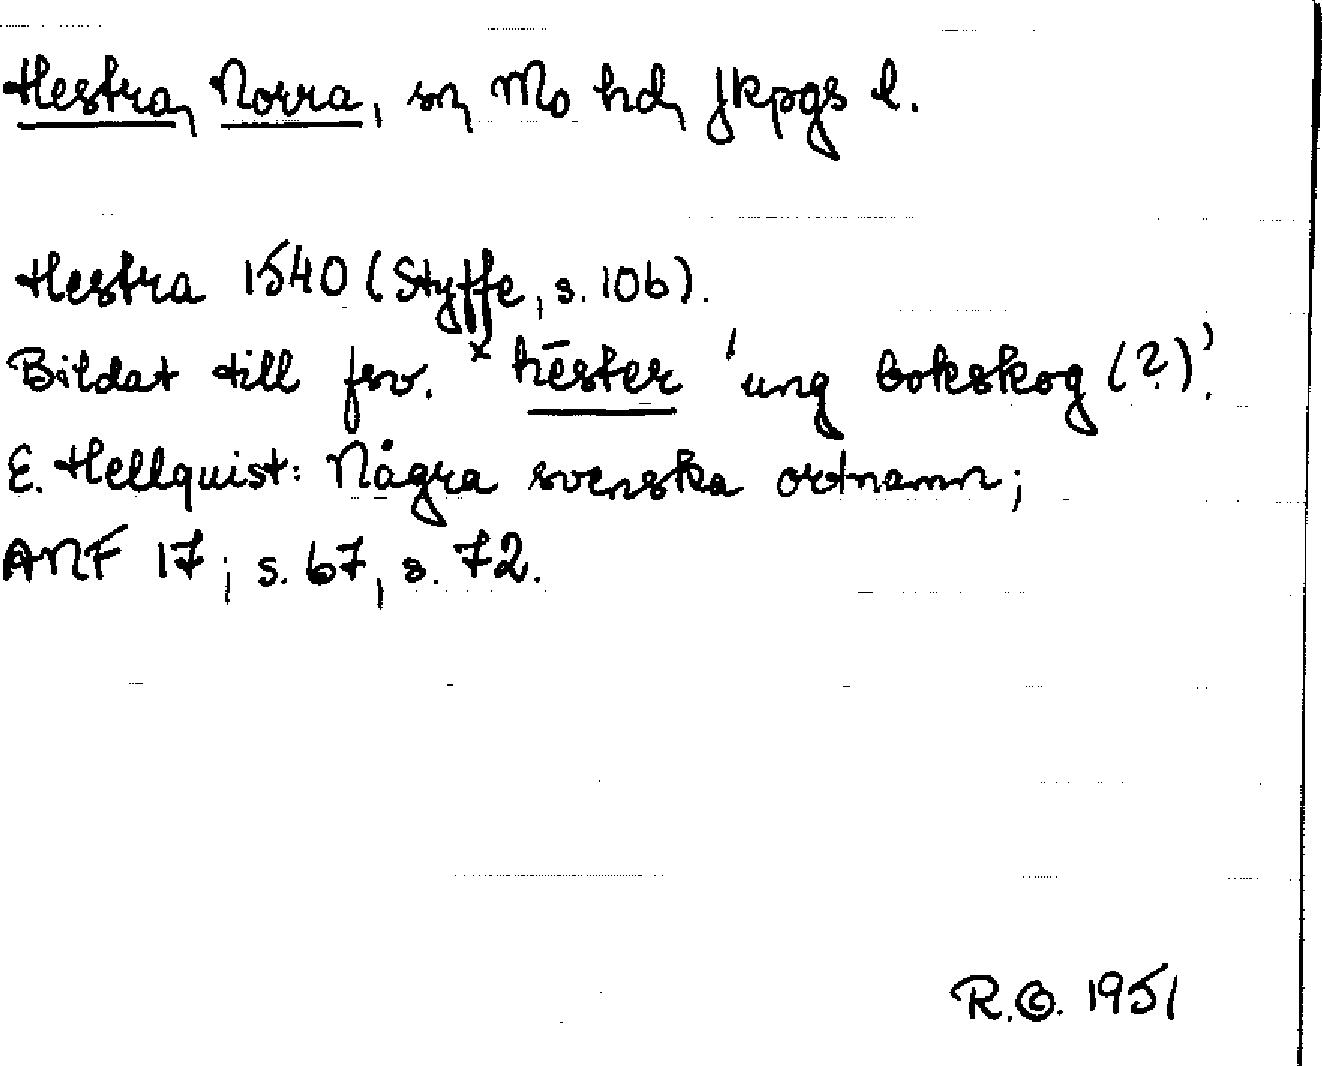 Hestra, Norra, sn, Mo hd, Jkpgs l.
Hestra 1540 (Styffe, s. 106).
Bildat till fsv. ×hēster 'ung bokskog (?)'.
E. Hellquist: Några svenska ortnamn;
ANF 17, s. 67, s. 72.
R.G. 1951